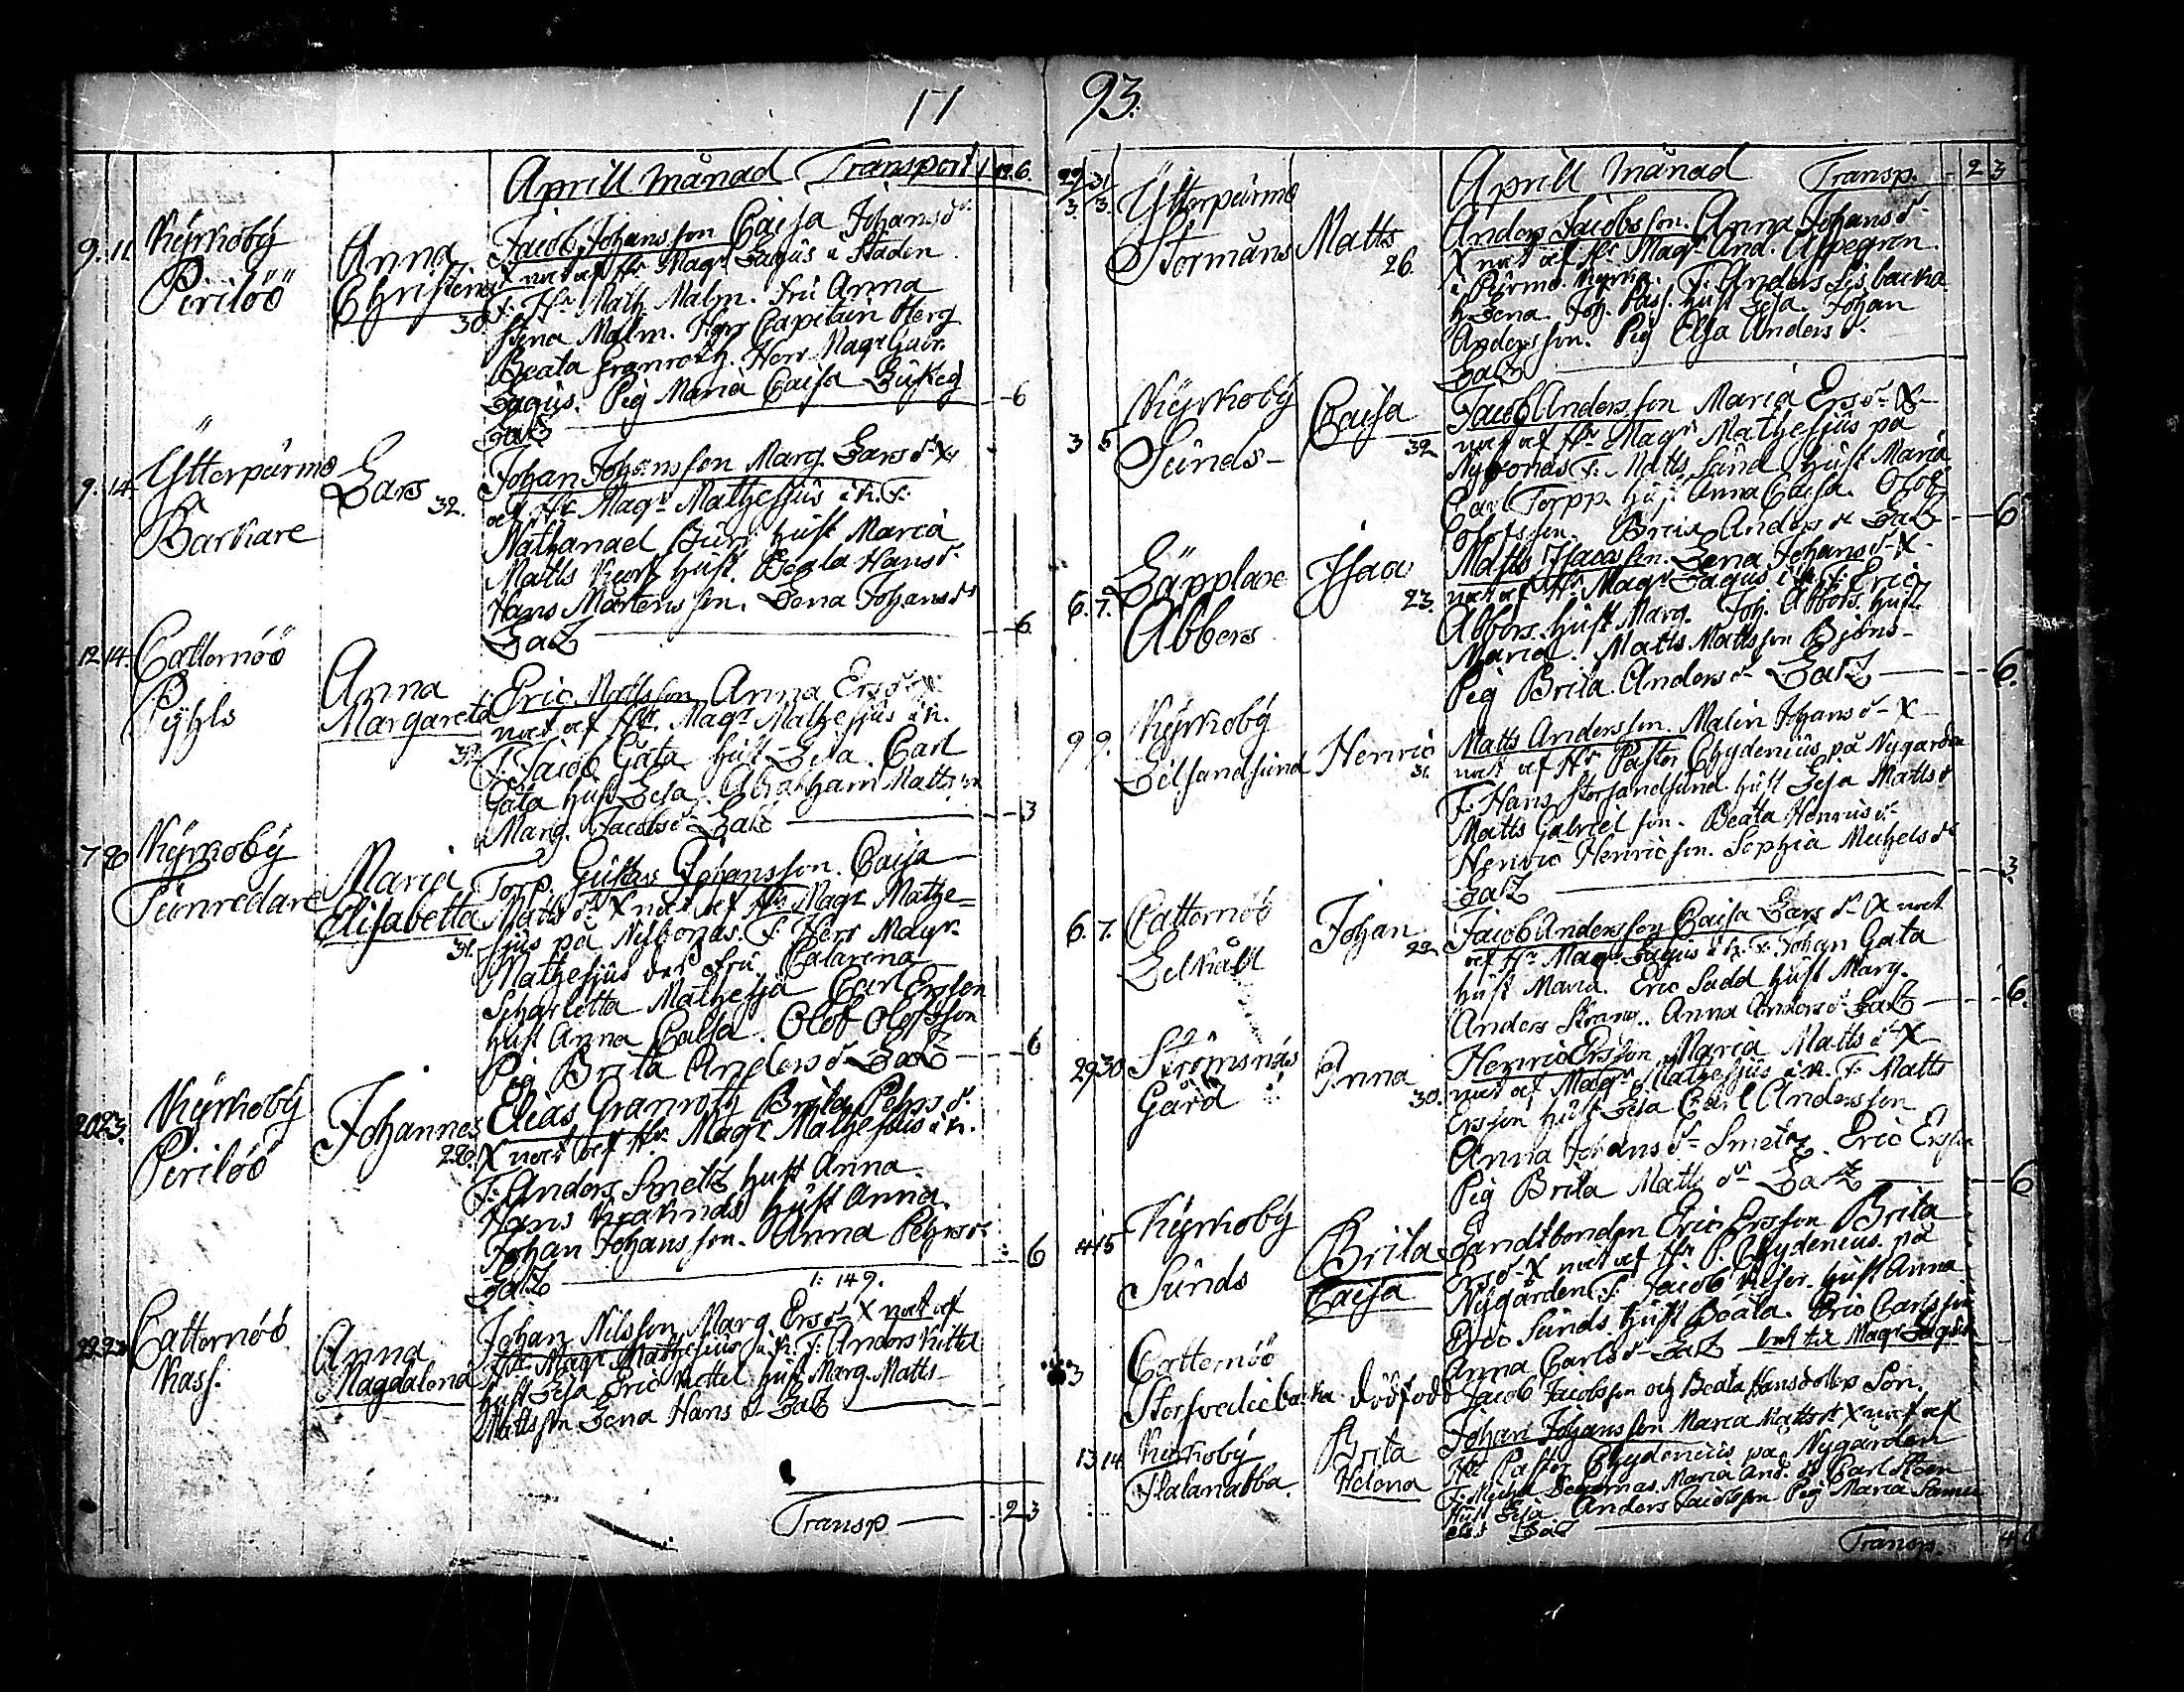 17
93.
Aprill Månad Transport 1 12. 6.
9. 11. Kÿrkobÿ
Pirilöö
Anna
Christina
30.
Jacob Johansson Caisa Johansdr.
X nat af Hr Magr Lagus i Staden
F. Hr Math Malm. Fru Anna
Stina Malm. Herr Capitain Berg
Beata Granroth. Herr Magr Gabr.
Lagus. Pig Maria Caisa
Satz 6
9. 14. Ÿtterpurmo
Barkare
Lars 32.
Johan Johansson Marg. Larsdr X
af Hr Magr Mathesius i K. F.
Nathanael hust Maria
Matts hust. Beata Hansdr
Hans Mårtensson. Lena Johansdr
Satz 6.
12. 14. Cattornöö
Pÿhls
Anna
Margareta
32.
Eric Mattsson Anna Ersdr X
nat af Hr Magr Mathesius i K.
F. Jacob Gata hust Lisa. Carl
Gata hust Lisa. Abraham Mattsson
Marg. Jacobsdr Satz 3
7 8 Kÿrkobÿ
Sunredare
Maria
Elisabetta
31.
Torp. Gustav Johansson. Caisa
Mattsdr X nat af Hr Magr Mathe=
sius på Nibonas. F. Herr Magr.
Mathesius des Fru Catarina
Scharletta Mathesia Carl Ersson
hust Anna Caisa. Olof Olofsson
Pig Brita Andersdr Satz 6
20. 23. Kÿrkobÿ
Pirilöö
Johannes
22.
Elias Granroth Brita Pehrsdr.
X nat af Hr. Magr Mathesius i K.
F. Anders Smeltz hust Anna
Hans hust Anna.
Johan Johansson. Anna Pehrsdr
Satz 6
1: 149.
22. 23. Cattornöö
Kass.
Anna
Magdalena
Johan Nilsson Marg Ersdr X nat af
Hr. Magr Mathesius i K. F. Anders Kittel
hust Lisa Eric Kittel hust Marg. Matts
Mattsson Lena Hansdr Satz
Transp 2 3
Aprill Månad Transp. 2 3
29/3. 31/3. Ÿtterpurmo
Stormåns
Matts
26.
Anders Jacobsson. Anna Johansdr
X nat af Hr Magr And. Aspegren
i Purmo Kyrka. F. Anders Lisbacka
h. Lena. Joh. hust Lisa. Johan
Andersson. Pig Elsa Andersdr.
Satz
3 5 Kÿrkobÿ
Sunds-
Caisa
32.
Jacob Andersson Maria Ersdr X
nat af Hr Magr Mathesius på
Nybonas F. Matts Sund hust Maria
Carl Torpp. hust Anna Caisa. Olof
Olofsson. Brita Andersdr Satz 6
6. 7. Läpplax
Abbers
Isac
23.
Matts Isacsson. Lena Johansdr X
nat af Hr Magr Lagus i K. F. Eric
Abbors hust Marg. Joh. Abbors hust
Maria. Matts Mattsson Björs-
Pig Brita Andersdr Satz 6.
9 9. Kÿrkobÿ
Lilsandsund
Henric
31.
Matts Andersson. Malin Johansdr X
nat af Hr Pastor Chydenius på Nygården
F. Hans Storsandsund hust Lisa Mattsdr
Matts Gabrielsson. Beata Henricsdr.
Henric Henricsson. Sophia Michelsdr
Satz 3.
6. 7. Cattornöö
Lelkåll
Johan
22.
Jacob Andersson Caisa Larsdr X nat
af Hr Magr Lagus i K. F. Johan Gata
hust Maria. Eric Sadd hust Marg.
Anders Anna Andersdr Satz 6.
29 30 Strömsnäs
Gård
Anna
30.
Henric Ersson Maria Mattsdr X
nat af Magr Mathesius i K. F. Matts
Ersson hust Lisa Carl Andersson
Anna Johansdr Smeltz. Eric Ersson
Pig Brita Mattsdr Satz 6
14 15 Kÿrkobÿ
Sunds
Brita
Caisa
Landtbonden Eric Ersson Brita
Ersdr X nat af Hr P. Chydenius på
Nygården F. Jacob hust Anna
Eric Sunds hust Beata. Eric Carlsson
Anna Carlsdr Satz
3 Cattornöö
Storfredicbacka
dödfödd
Jacob Jacobsson och Beata Hansdotter Son.
13 14 Kÿrkobÿ
Flatanabba.
Brita
Helena
Johan Johansson Maria Mattsdr X nat af
Hr Pastor Chydenius på Nygården
F. Michel Maria And. dr Carl
Hust Lisa Anders Jacobsson Pig Maria Samu
elsd Satz
Transp. 4